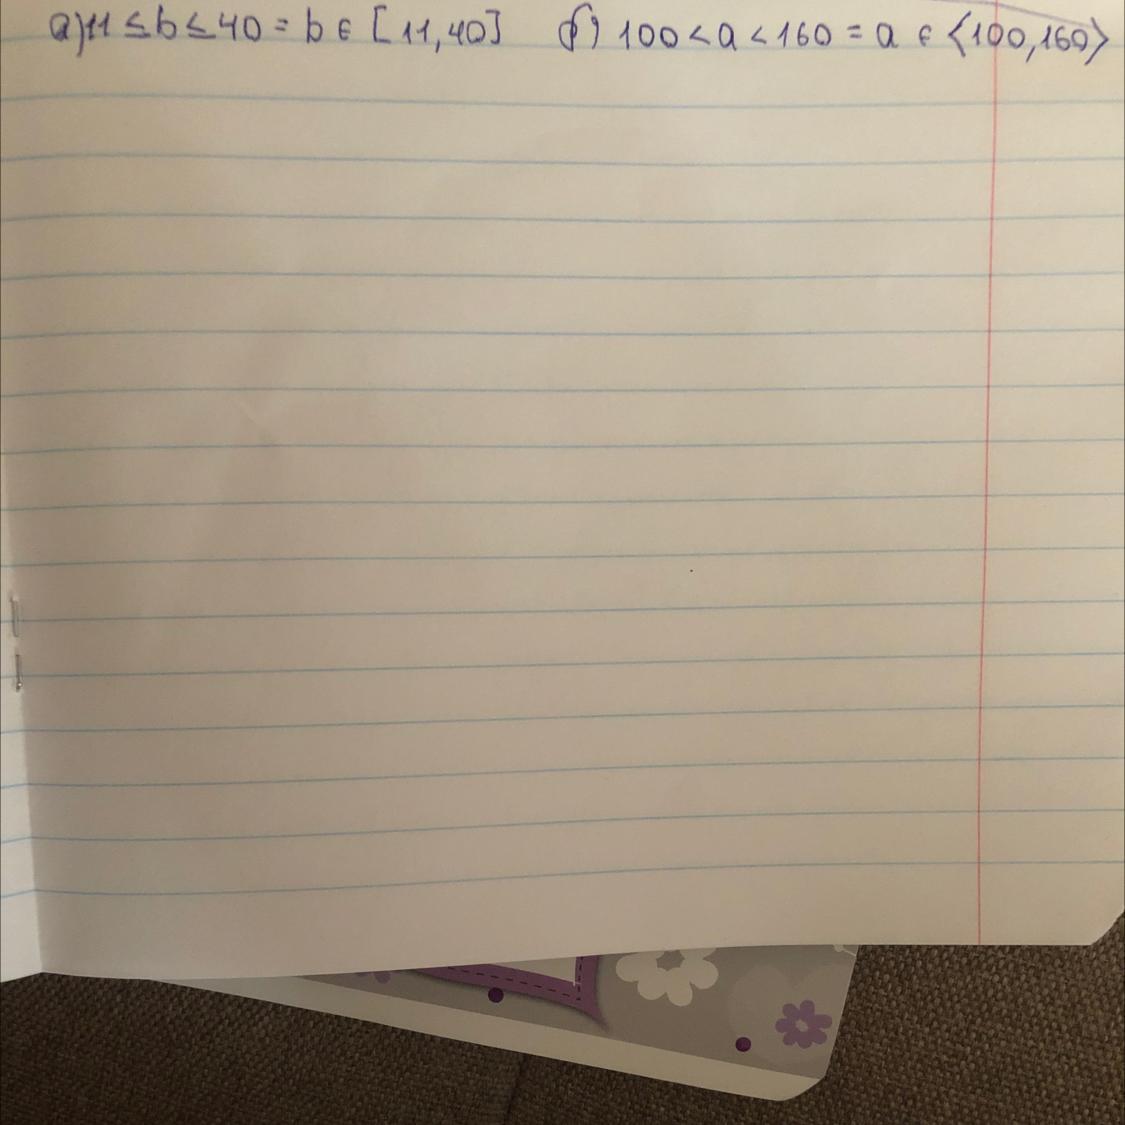 а) 11 ≤ b ≤ 40 = b ∈ [11,40] б) 100 < a < 160 = a ∈ ⟨100,160⟩